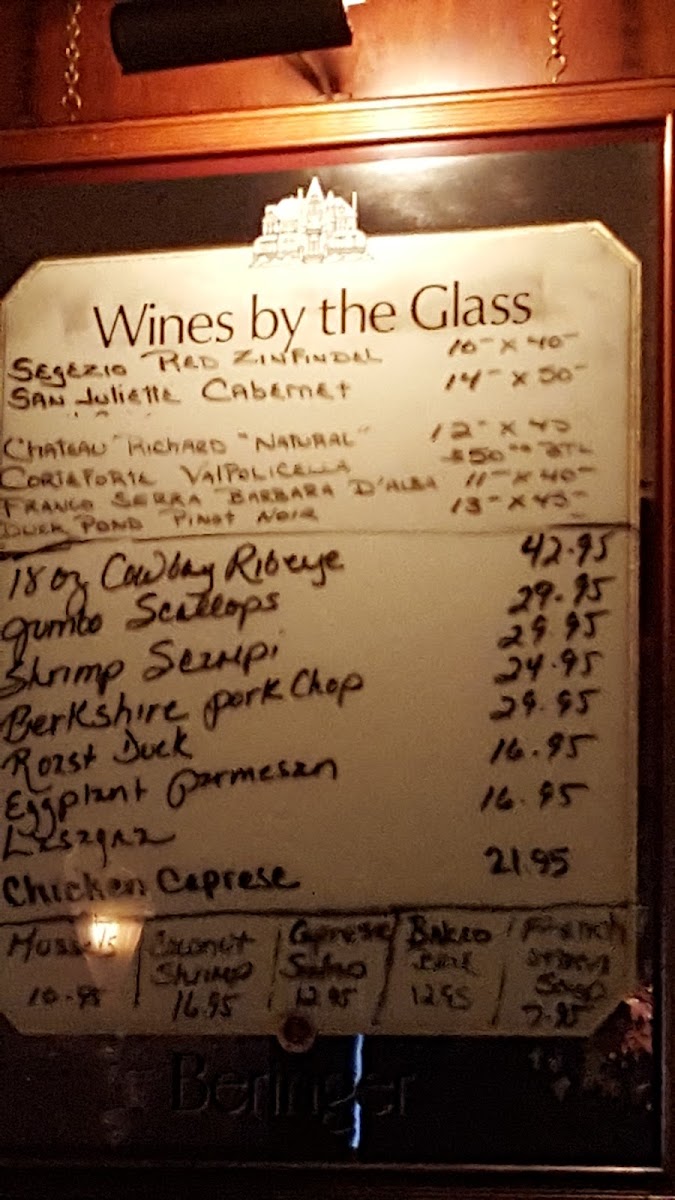 Wines by the Glass
SEGEZIO RED ZINFINDEL 10- X 40-
SAN Juliette Cabernet 14- X 50-
CHATEAU "RICHARD "NATURAL" 12- X 45
CORTEFORTE VALPOLICELLA $50.00 BTL
FRANCO SERRA BARBARA D'ALBA 11- X 40-
DUCK POND PINOT NOIR 13- X 45-
18 oz Cowboy Ribeye 42.95
Jumbo Scallops 29.95
Shrimp Scampi 29.95
Berkshire pork Chop 24.95
Roast Duck 29.95
Eggplant parmesan 16.95
Lasagna 16.95
Chicken Caprese 21.95
Mussels 10.95
Coconut Shrimp 16.95
Caprese Salad 12.95
BAKED 12.95
French Onion Soup 7.95
Beringer